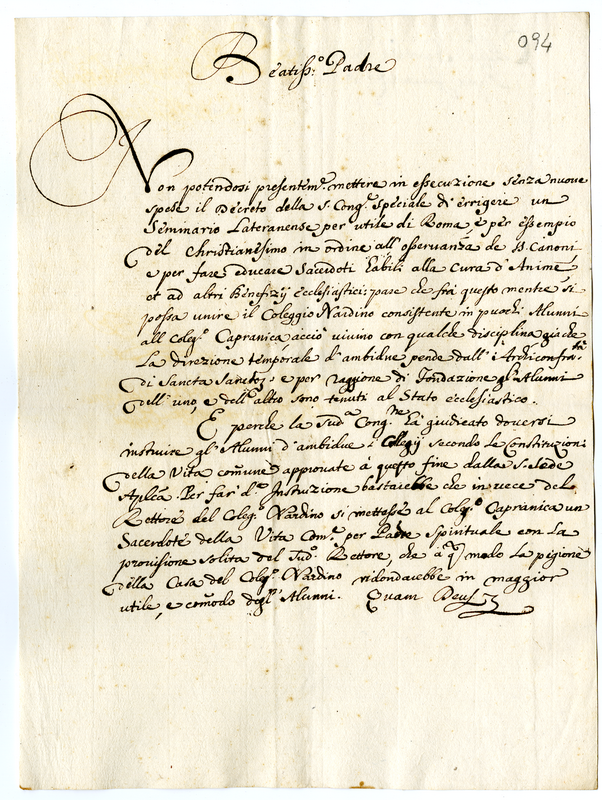 094
Beatiss.º Padre
Non potendosi presentem.te mettere in essecuzione senza nuove
spese il Decreto della S. Cong.ne speciale di errigere un
Seminario Lateranense per utile di Roma, e per essempio
del Christianesimo in ordine all'osservanza de S. Canoni
e per fare educare Sacerdoti habili alla Cura d'Anime
et ad altri Benefizij ecclesiastici; pare che frà questo mentre si
possa unire il Collegio Nardino consistente in puochi Alunni
all Coleg.º Capranica acciò vivino con qualche disciplina giàche
la direzione temporale d'ambidue pende dall'Archiconfra.tà
di Sancta Sanctor. e per raggione di fondazione gl'Alunni
dell'uno, e dell'altro sono tenuti al Stato ecclesiastico.
E perche la Sud.a Cong.ne hà giudicato doversi
instruire gl'Alunni d'ambidue i Colegij secondo le Constituzioni
della Vita comune approvate à questo fine dalla S. Sede
Aplica. Per far d.a Instruzione bastarebbe che in vece del
Rettore del Coleg.º Nardino si mettesse al Coleg.º Capranica un
Sacerdote della Vita Com.e per Padre Spirituale con la
provisione solita del Sud.º Rettore che à q.º modo la pigione
della Casa del Coleg.º Nardino ridondarebbe in maggior
utile, e comodo degl'Alunni. Quam Deus